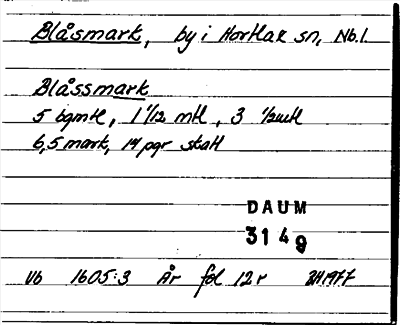 Blåsmark, by i Hortlax sn, Nb.l.
Blåssmark
5 bgmtl, 1 1/12 mtl, 3 1/2mtl
6,5 mark, 14 pgr skatt
DAUM
3149
Vb 1605:3 År fol 12 r 1977